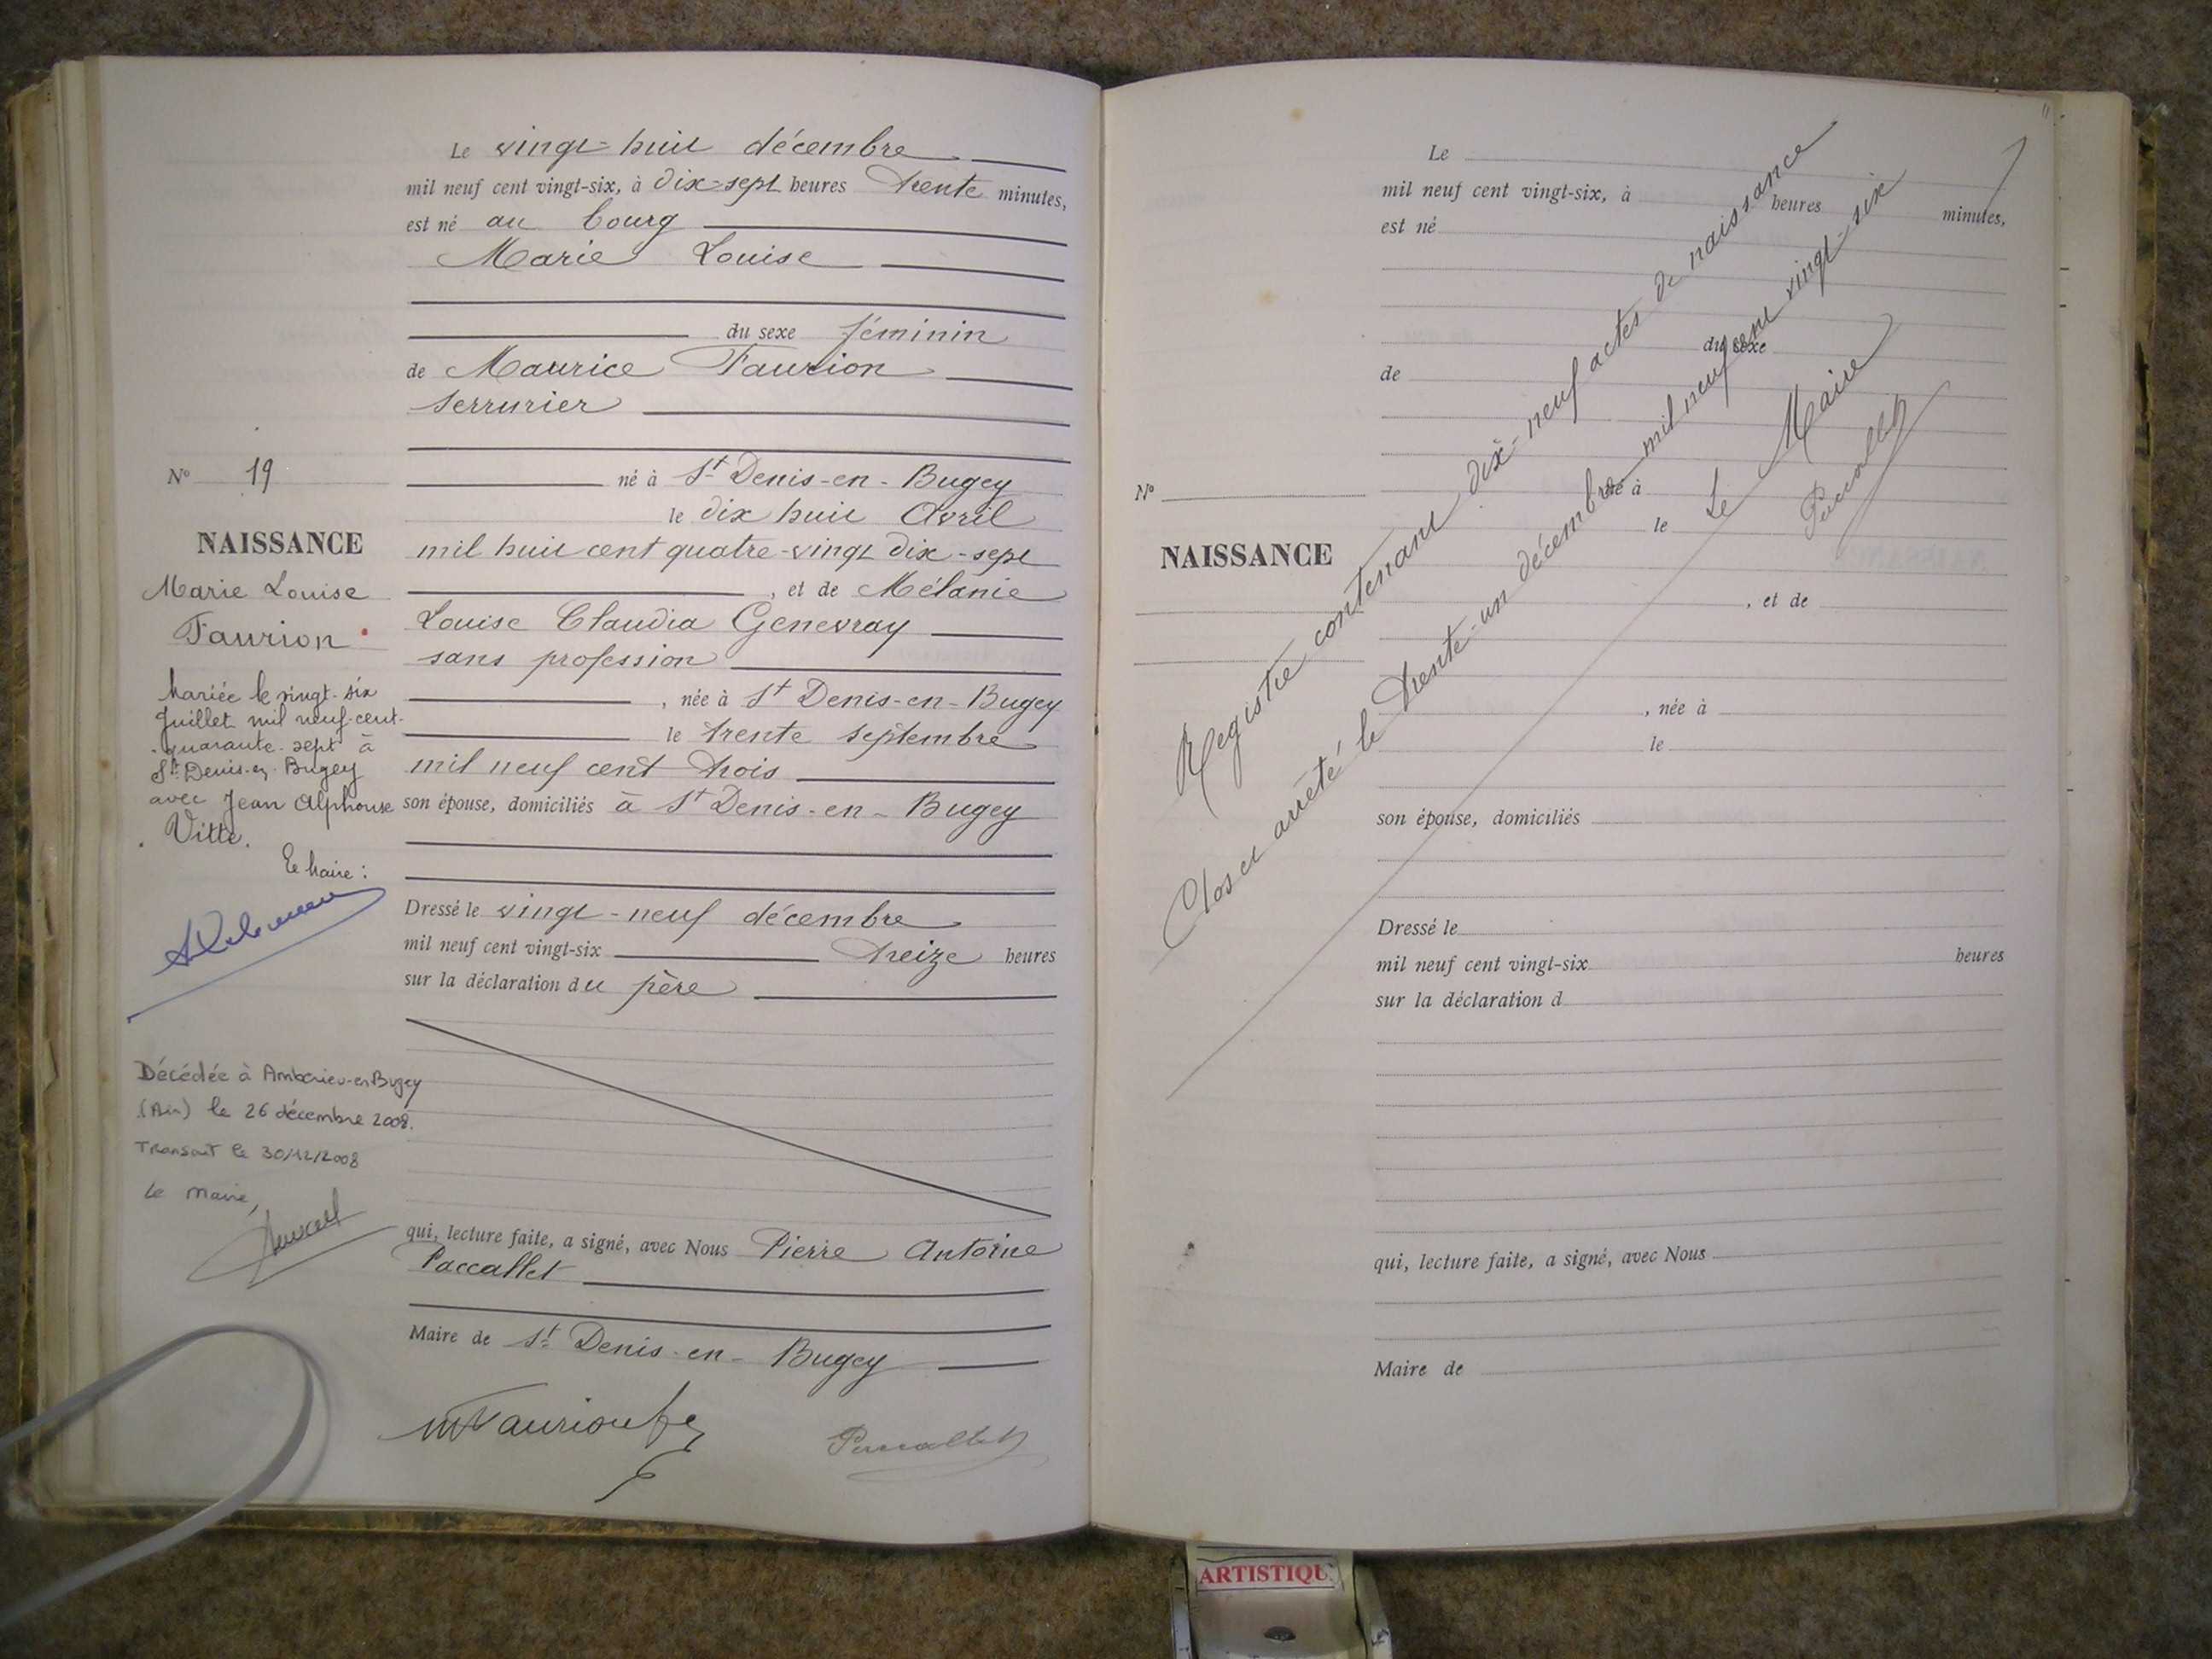 Le vingt-huit décembre
mil neuf cent vingt-six, à dix-sept heures trente minutes,
est né au bourg
Marie Louise
du sexe féminin
de Maurice Faurion
serrurier
né à St Denis-en-Bugey
le dix huit Avril
mil huit cent quatre-vingt dix-sept
, et de Mélanie
Louise Claudia Genevray
sans profession
, née à St Denis-en-Bugey
le trente septembre
mil neuf cent trois
son épouse, domiciliés à St Denis-en-Bugey
Dressé le vingt-neuf décembre
mil neuf cent vingt-six treize heures
sur la déclaration du père
qui, lecture faite, a signé, avec Nous Pierre Antoine
Paccallet
Maire de St Denis-en-Bugey
MFaurion
Paccallet
No 19
NAISSANCE
Marie Louise
Faurion
Mariée le vingt-six
Juillet mil neuf-cent-
quarante-sept à
St Denis-en-Bugey
avec Jean Alphonse
Vitte.
Le Maire :
Décédée à Ambérieu-en-Bugey
(Ain) le 26 décembre 2008.
Transcrit le 30/12/2008
Le Maire,
Le
mil neuf cent vingt-six, à heures minutes,
est né
du sexe
de
No
né à
le
NAISSANCE
, et de
, née à
le
son épouse, domiciliés
Dressé le
mil neuf cent vingt-six heures
sur la déclaration d
qui, lecture faite, a signé, avec Nous
Maire de
Registre contenant dix-neuf actes de naissance
Clos et arrêté le trente-un décembre mil neuf cent vingt-six
Le Maire
Paccallet
ARTISTIQU